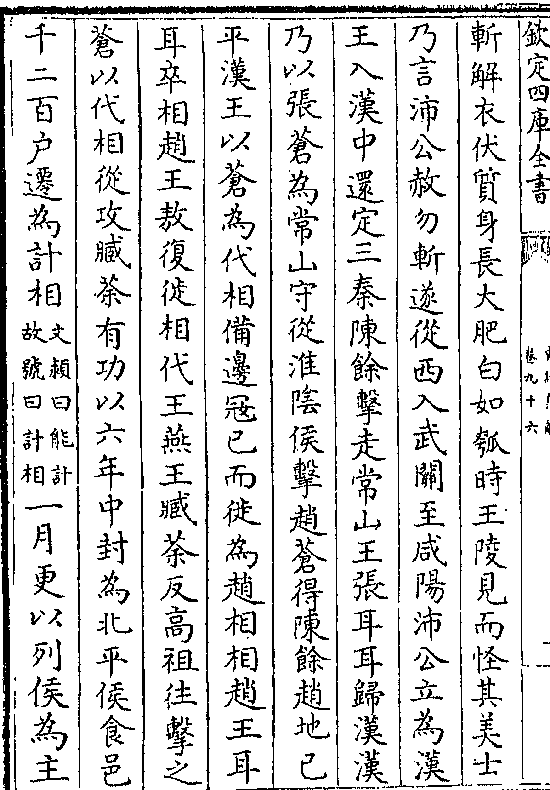 欽定四庫全書
卷九十六
斬解衣伏質身長大肥白如瓠時王陵見而怪其美士
乃言沛公赦勿斬遂從西入武關至咸陽沛公立為漢
王入漢中還定三秦陳餘擊走常山王張耳耳歸漢漢
乃以張蒼為常山守從淮陰侯擊趙蒼得陳餘趙地已
平漢王以蒼為代相備邊寇已而徙為趙相相趙王耳
耳卒相趙王敖復徙相代王燕王臧荼反高祖往擊之
蒼以代相從攻臧荼有功以六年中封為北平侯食邑
千二百户遷為計相文頴曰能計故號曰計相一月更以列侯為主